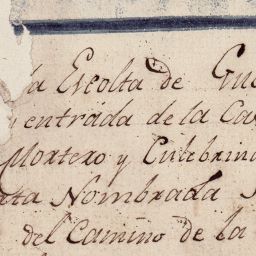 la Escolta de Gu
entrada de la Ca
Mortero y Culebrina
ta Nombrada
del Camino de la